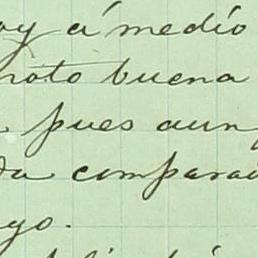 oy á medio
noto buena
pues aun
da compara
go.